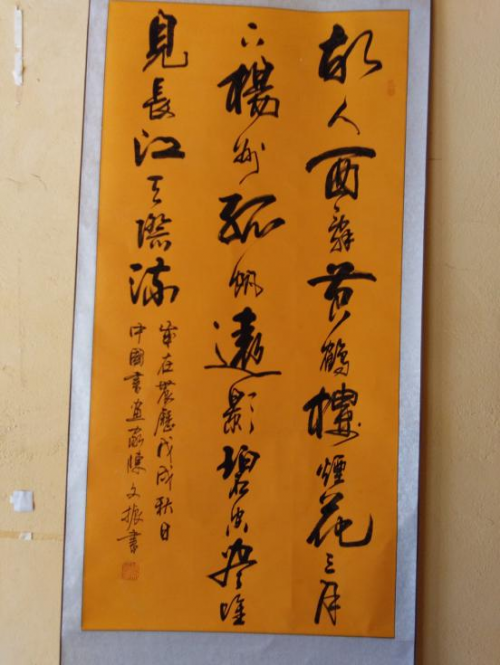 故人西辞黄鶴樓煙花三月
下楊州孤帆遠影碧空尽唯
見長江天際流
歲在農歷戊戌秋日
中國書画家陳文振書